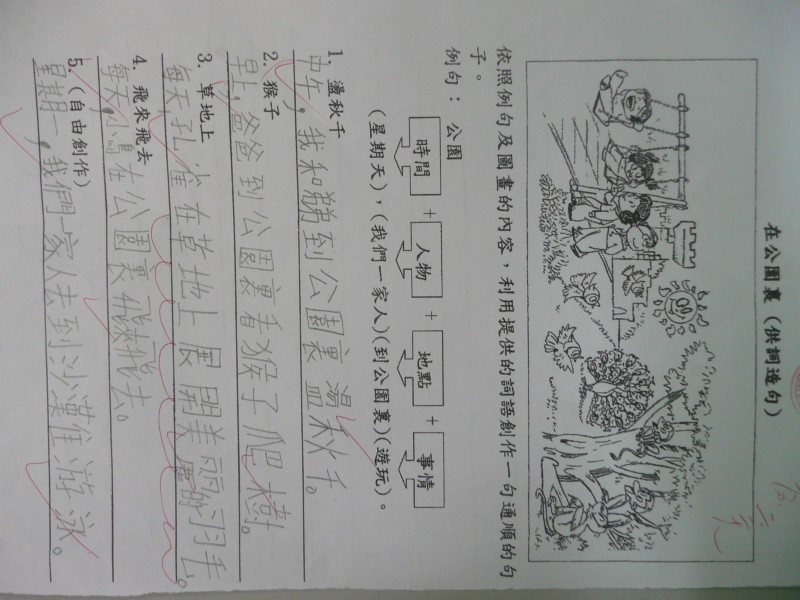 在公園裏（供詞造句）
依照例句及圖畫的內容，利用提供的詞語創作一句通順的句
子。
例句： 公園
時間 + 人物 + 地點 + 事情
(星期天)，(我們一家人)(到公園裏)(遊玩)。
1. 盪秋千
中午，我和弟弟到公園裏盪秋千。
2. 猴子
早上，爸爸到公園裏看猴子爬樹。
3. 草地上
每天孔雀在草地上展開美麗的羽毛。
4. 飛來飛去
每天，小鳥在公園裏飛來飛去。
5.（自由創作）
星期一，我們一家人去到沙灘游泳。